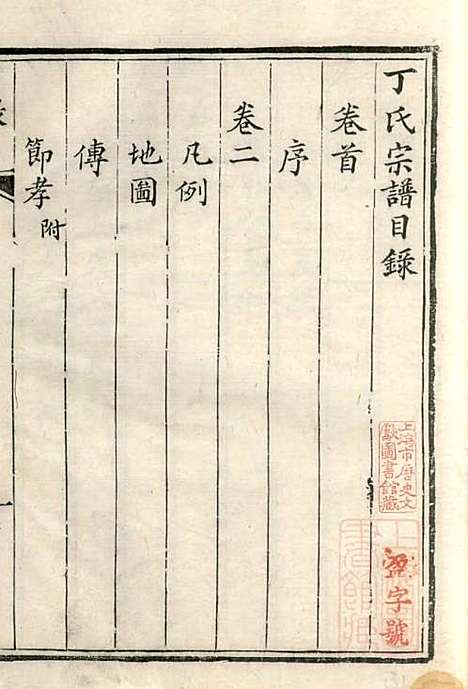 丁氏宗譜目錄
卷首
序
卷二
凡例
地圖
傳
節孝附
上海市歷史文
獻圖書館藏
盈字號